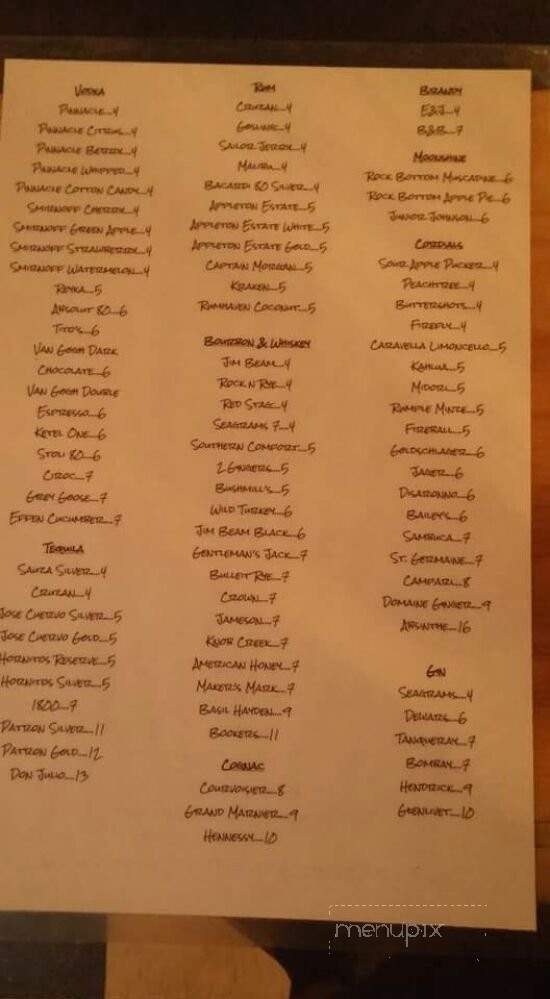 Vodka
Pinnacle...4
Pinnacle Citrus...4
Pinnacle Berry...4
Pinnacle Whipped...4
Pinnacle Cotton Candy...4
Smirnoff Cherry...4
Smirnoff Green Apple...4
Smirnoff Strawberry...4
Smirnoff Watermelon...4
Reyka...5
Absolut 80...6
Tito's...6
Van Gogh Dark
Chocolate...6
Van Gogh Double
Espresso...6
Ketel One...6
Stoli 80...6
Ciroc...7
Grey Goose...7
Effen Cucumber...7
Tequila
Sauza Silver...4
Cruzan...4
Jose Cuervo Silver...5
Jose Cuervo Gold...5
Hornitos Reserve...5
Hornitos Silver...5
1800...7
Patron Silver...11
Patron Gold...12
Don Julio...13
Rum
Cruzan...4
Goslings...4
Sailor Jerry...4
Malibu...4
Bacardi 80 Silver...4
Appleton Estate...5
Appleton Estate White...5
Appleton Estate Gold...5
Captain Morgan...5
Kraken...5
Rumhaven Coconut...5
Bourbon & Whiskey
Jim Beam...4
Rock N Rye...4
Red Stag...4
Seagrams 7...4
Southern Comfort...5
2 Gingers...5
Bushmill's...5
Wild Turkey...6
Jim Beam Black...6
Gentleman's Jack...7
Bulleit Rye...7
Crown...7
Jameson...7
Knob Creek...7
American Honey...7
Maker's Mark...7
Basil Hayden...9
Bookers...11
Cognac
Courvoisier...8
Grand Marnier...9
Hennessy...10
Brandy
E&J...4
B&B...7
Moonshine
Rock Bottom Muscadine...6
Rock Bottom Apple Pie...6
Junior Johnson...6
Cordials
Sour Apple Pucker...4
Peachtree...4
Buttershots...4
Firefly...4
Caravella Limoncello...5
Kahlua...5
Midori...5
Rumple Minze...5
Fireball...5
Goldschlager...6
Jager...6
Disaronno...6
Bailey's...6
Sambuca...7
St. Germaine...7
Campari...8
Domaine Ginger...9
Absinthe...16
Gin
Seagrams...4
Dewars...6
Tanqueray...7
Bombay...7
Hendrick...9
Glenlivet...10
menupix